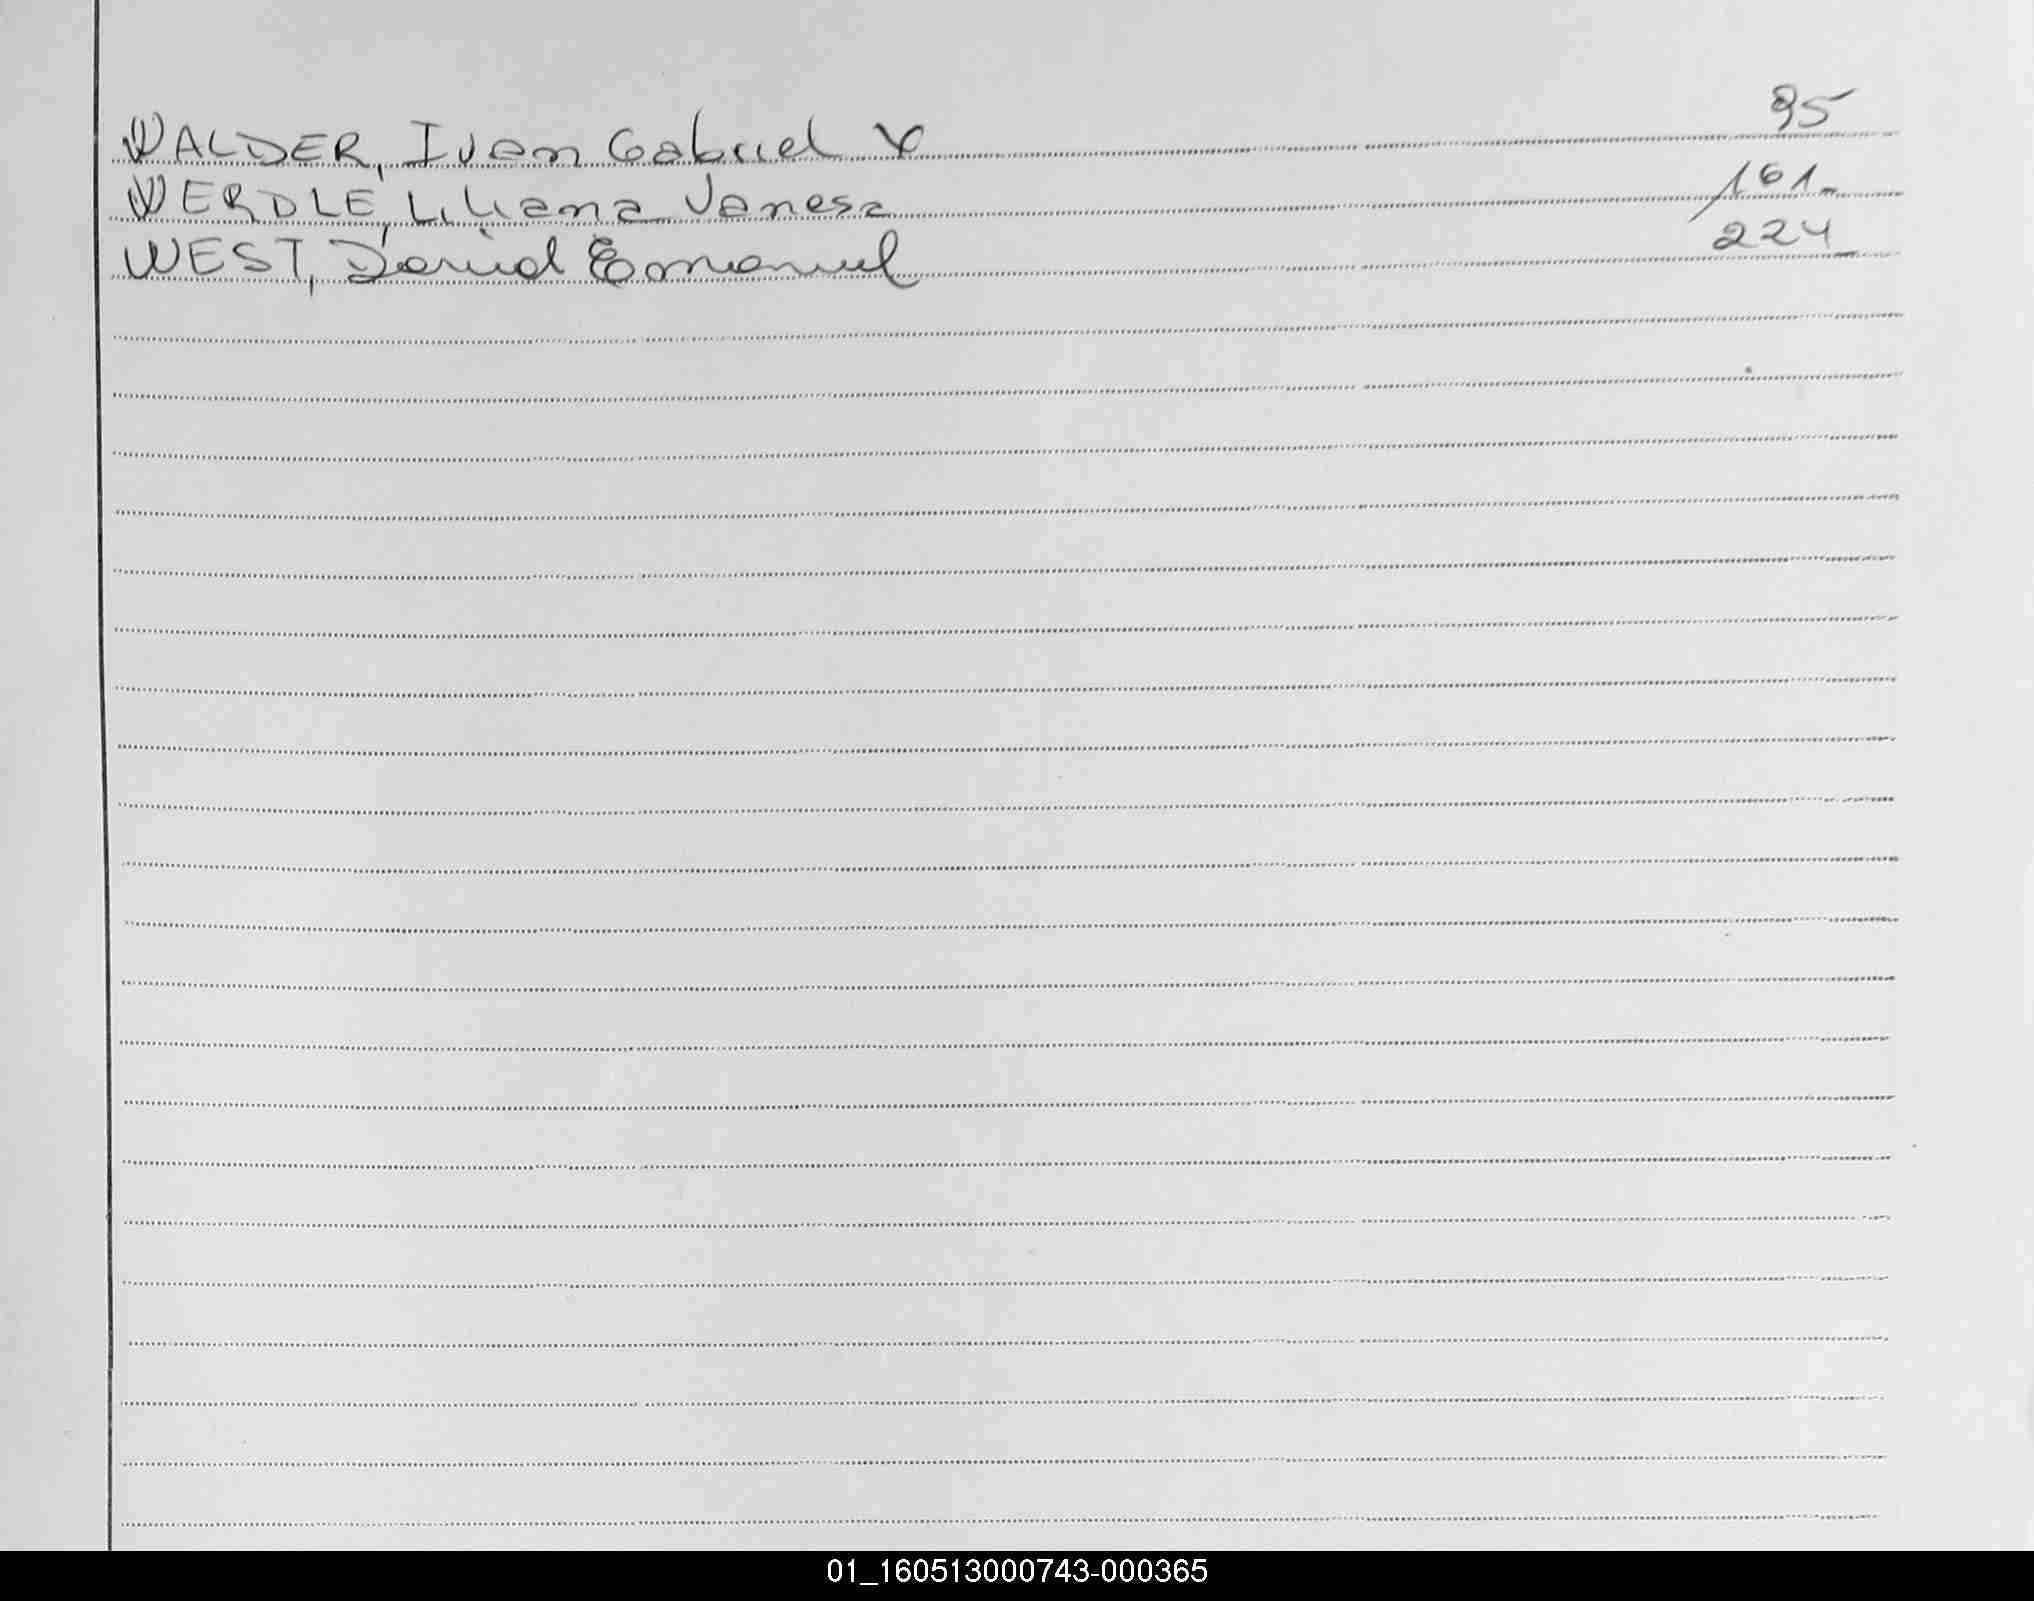 WALDER, Ivan Gabriel 95
WERDLE, Liliana Vanesa 161-
WEST, David Emanuel 224
01_160513000743-000365